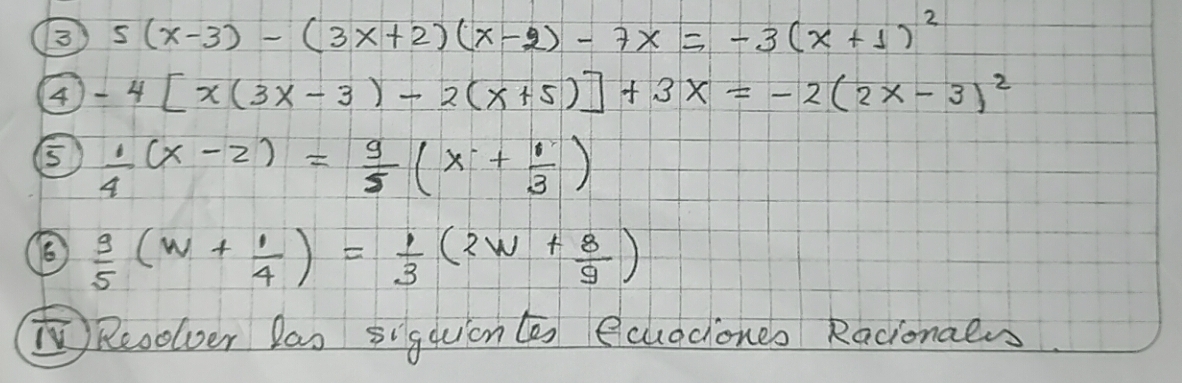 ③ 5(x-3) - (3x+2)(x-2) - 7x = -3(x+1)²
④ -4[x(3x-3) - 2(x+5)] + 3x = -2(2x-3)²
⑤ 1/4 (x-2) = 9/5 (x + 1/3)
⑥ 9/5 (w + 1/4) = 1/3 (2w + 8/9)
IV Resolver las siguientes Ecuaciones Racionales.